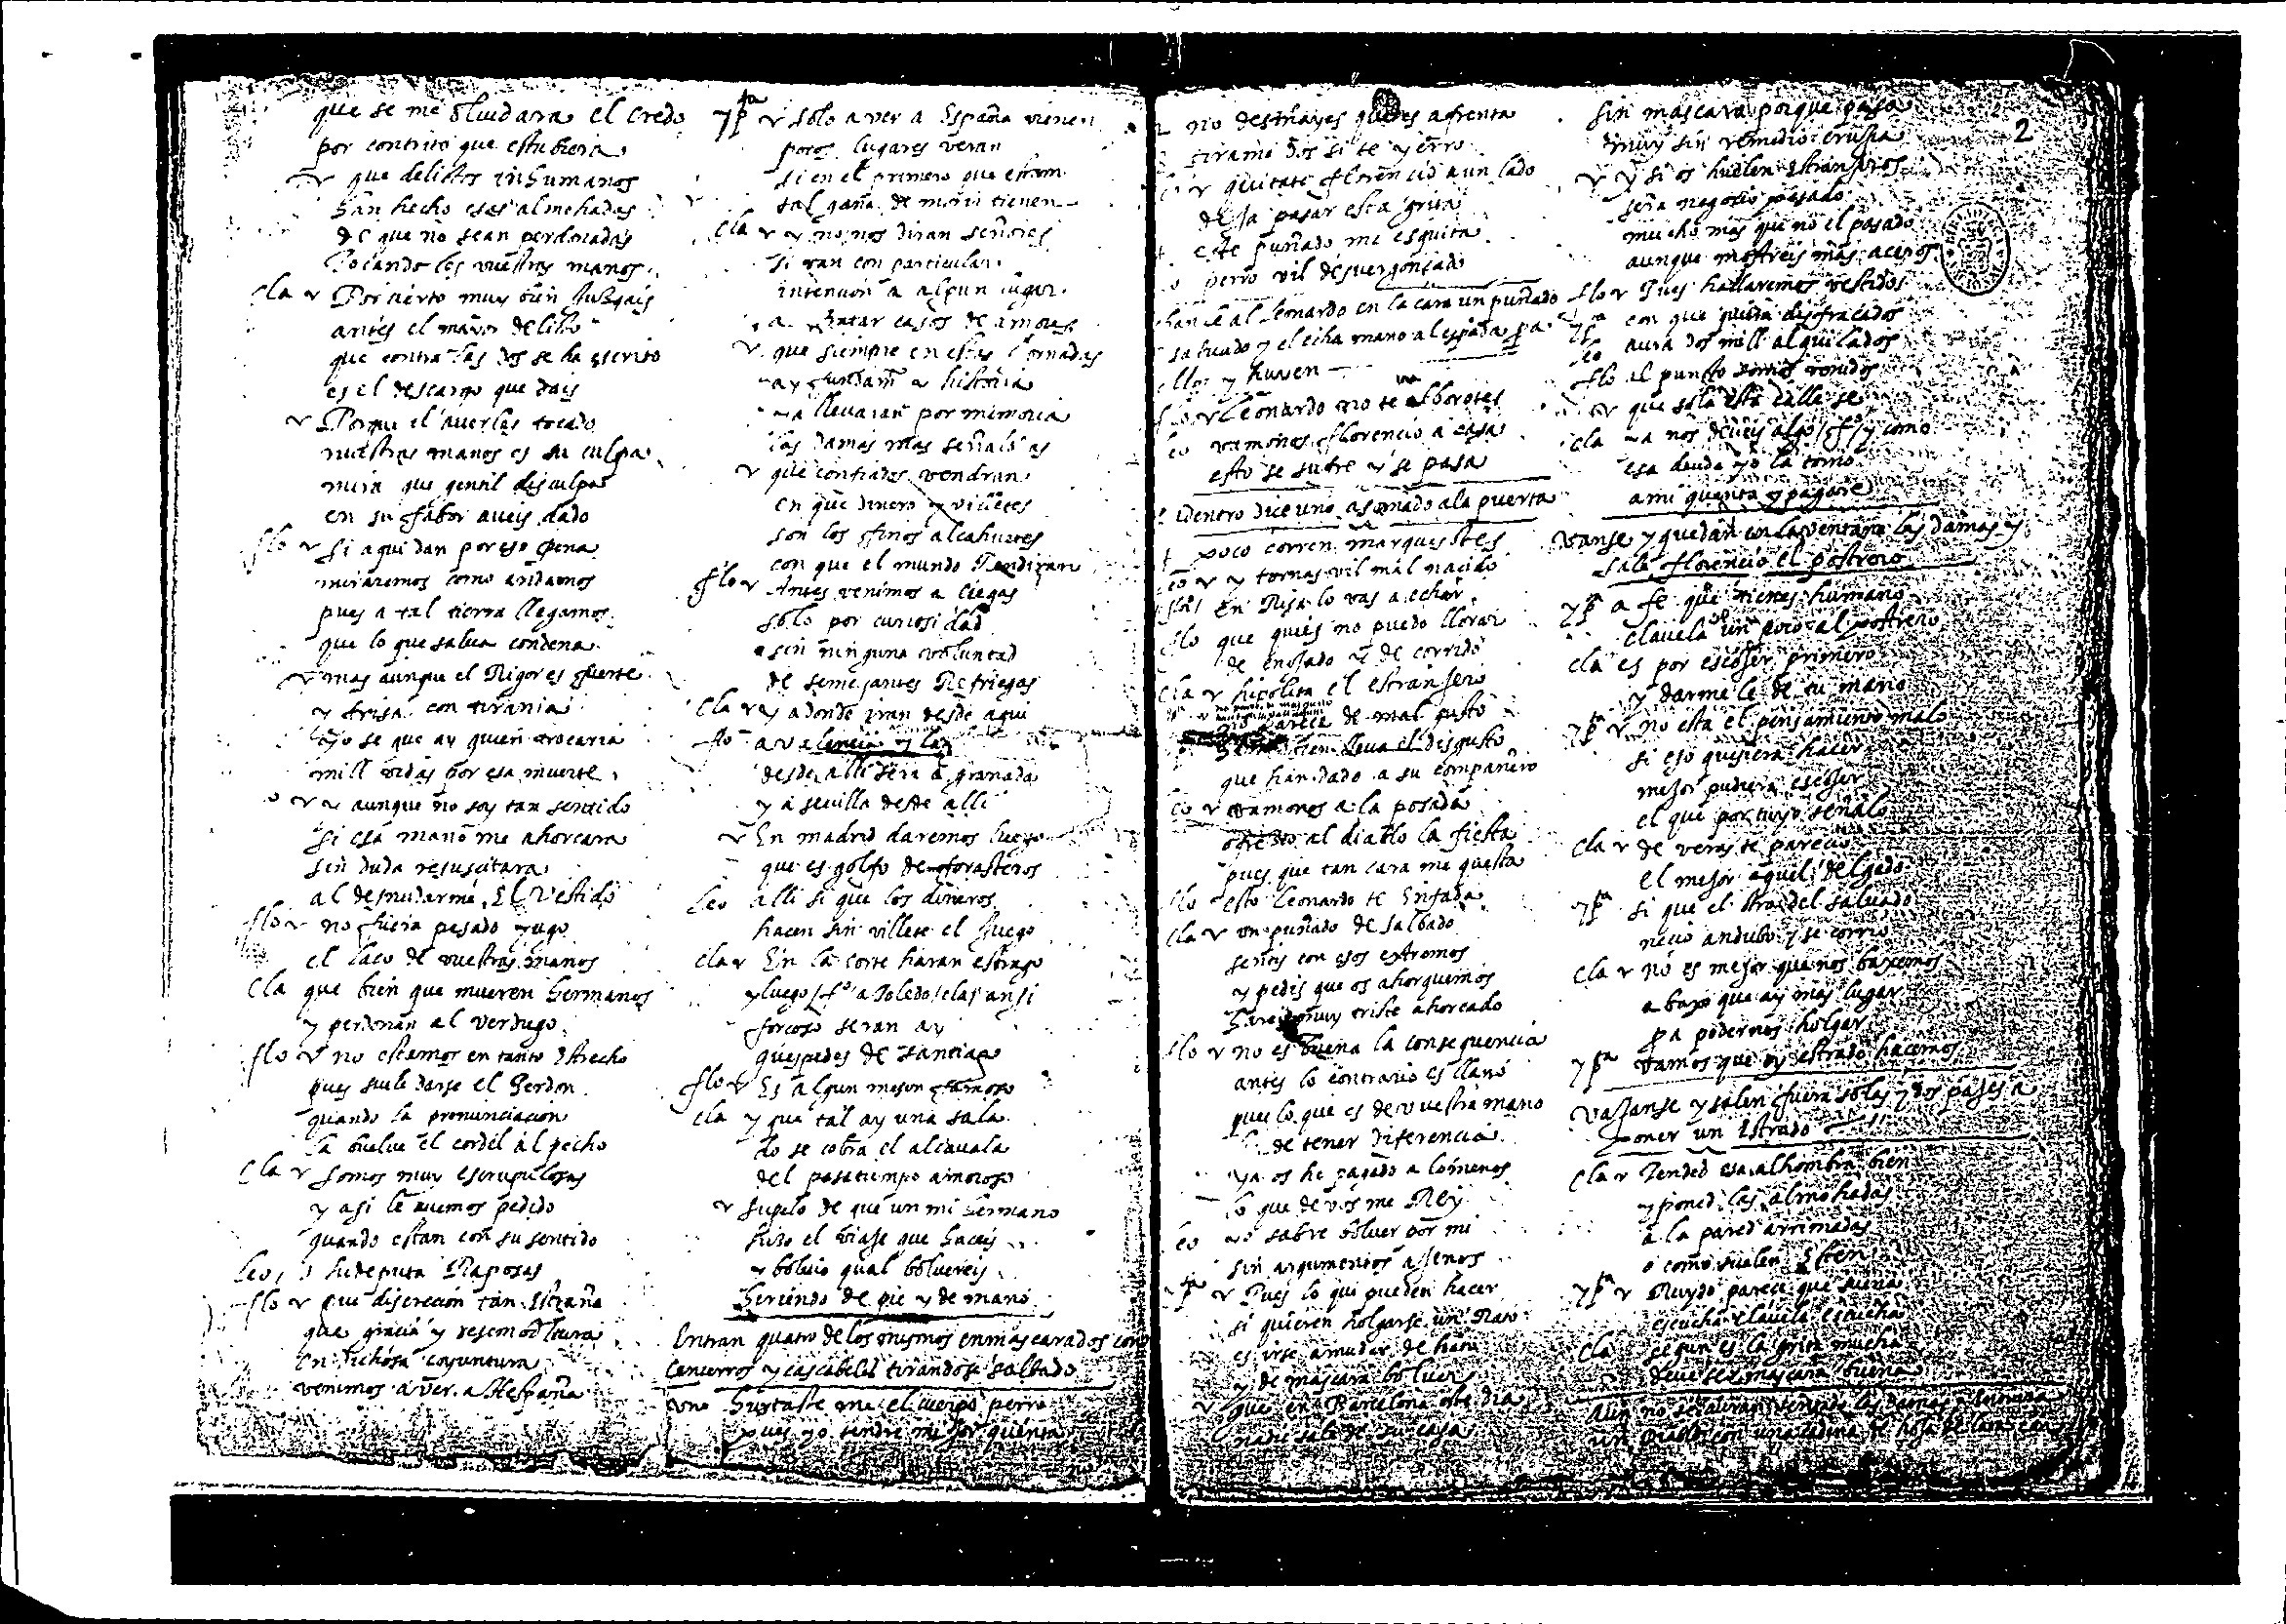 que se me oluidara el credo
por contrito que estubiera
que delictos inhumanos
han hecho esas almohadas
de que no sean perdonadas
tocando les vuestras manos
cla Por cierto muy bien Juzgais
antes el mayor delito
que contra las dos se ha escrito
es el descargo que dais
Porque el auerlas tocado
nuestras manos es su culpa
mira que gentil disculpa
en su fabor aueis dado
flo si aqui dan por eso pena
miraremos como andamos
pues a tal tierra llegamos
que lo que salua condena
mas aunque el Rigor es fuerte
y frisa con tirania
yo se que ay quien trocaria
mill vidas por esa muerte
y aunque no soy tan sentido
si esa mano me ahorcara
sin duda resuscitara
al desnudarme El vestido
flo no fuera pesado yugo
el laço de vuestras manos
Cla que bien que mueren hermanos
y perdonan al verdugo
flo no estamos en tanto Estrecho
pues suele darse el Perdon
quando la pronunciacion
la buelue el cordel al pecho
Cla somos muy escrupulosas
y asi le auemos pedido
quando estan con su sentido
Leo hideputa Raposas
flo que discrecion tan Estraña
que gracia y desemboltura
en dichosa coyuntura
venimos a ver a Hespaña
yp.ta solo a ver a España vienen
pocos lugares veran
si en el primero que estran
tal gana de morir tienen
Cla y no nos diran señores
si van con particular
intencion a algun lugar
a tratar casos de amores
que siempre en estas Jornadas
ay
ya llevaran por memoria
las damas mas señaladas
que confiados vendran
en que dinero y villetes
son los finos alcahuetes
con que el mundo Rendiran
flo Antes venimos a ciegas
solo por curiosidad
sin ninguna voluntad
de semejantes Refriegas
Cla y adonde yran desde aqui
flo a valencia y
desde alli sera a granada
y a seuilla desde alli
En madrid daremos luego
que es golfo de forasteros
Leo alli si que los dineros
hacen sin villete el Juego
cla En la corte haran estrago
y luego /fº/ a Toledo /cla/ ansi
forçoso seran ay
guespedes de santiago
flo Es algun meson famoso
cla y que tal ay una sala
do se cobra el alcauala
del pasatiempo amoroso
supelo de que un mi hermano
hizo el viaje que haceis
y boluio qual boluereis
hiriendo de pie y de mano
Entran quatro de los mismos enmascarados con
cencerros y cascabeles tirandose salbado
uno hurtaste me el cuerpo perro
pues yo tendre mejor quenta
2
no desmayes que es afrenta
tirame dos si te yerro
quitate florencio a un lado
deja pasar esta grita
este puñado me esquita
perro vil desuergonçado
hanle al leonardo en la cara un puñado
saluado y el echa mano al espada pa
ellos y huyen
leonardo no te alborotes
leo vamonos florencio a casa
esto se sufre y se pasa
dentro dice uno asomado a la puerta
poco corren marquesotes
leo y tornas vil mal nacido
En Risa lo vas a echar
flo que quies no puedo llorar
de enojado y de corrido
Cla hipolita el estranjero
parece de mal gusto
bien lleua el disgusto
que han dado a su compañero
leo vamonos a la posada
ofrezco al diablo la fiesta
pues que tan cara me questa
flo esto leonardo te Enfada
cla un puñado de salbado
señor con esos extremos
y pedis que os ahorquemos
hareis muy triste ahorcado
flo no es buena la consequencia
antes lo contrario es llano
que lo que es de vuestra mano
de tener diferencia
ya os he pagado a lo menos
lo que de vos me Rey
leo yo sabre boluer por mi
sin argumentos ajenos
yp.ta Pues lo que pueden hacer
si quieren holgarse un Rato
es irse a mudar de hato
y de mascara boluer
que en Barcelona este dia
nadie sale de su casa
sin mascara porque pasa
muy sin remedio crujia
y si os huelen Estranjeros
sera negocio pesado
mucho mas que no el pasado
aunque mostreis mas aceros
flo Pues hallaremos vestidos
con que quedar disfraçados
yp.ta aura dos mill alquilados
flo al puncto somos venidos
que sola esta calle se
cla ya nos deueis algo /fº/ y como
esa deuda yo la tomo
a mi quenta y pagare
vanse y quedan en la ventana las damas y
sale florencio el postrero
yp.ta a fe que tienes humano
clauela un poco al postrero
cla es por escojer primero
y darme le de tu mano
yp.ta no esta el pensamiento malo
si eso quisiera hacer
mejor pudiera escojer
el que por tuyo señalo
cla de veras te parecio
el mejor aquel delgado
yp.ta si que el otro del saluado
necio andubo y se corrio
cla no es mejor que nos baxemos
abaxo que ay mas lugar
pa podernos holgar
yp.ta vamos que oy estrado hacemos
vajanse y salen fuera solas y dos pajes a
poner un Estrado
Cla Tended esa alhombra bien
y poned las almohadas
a la pared arrimadas
o como suelen Esten
yp.ta Ruydo parece que suena
escucha clauela escucha
cla segun es la grita mucha
deue ser mascara buena
Aun no se auran sentado las damas
un diablo con una cadena de hoja de lata